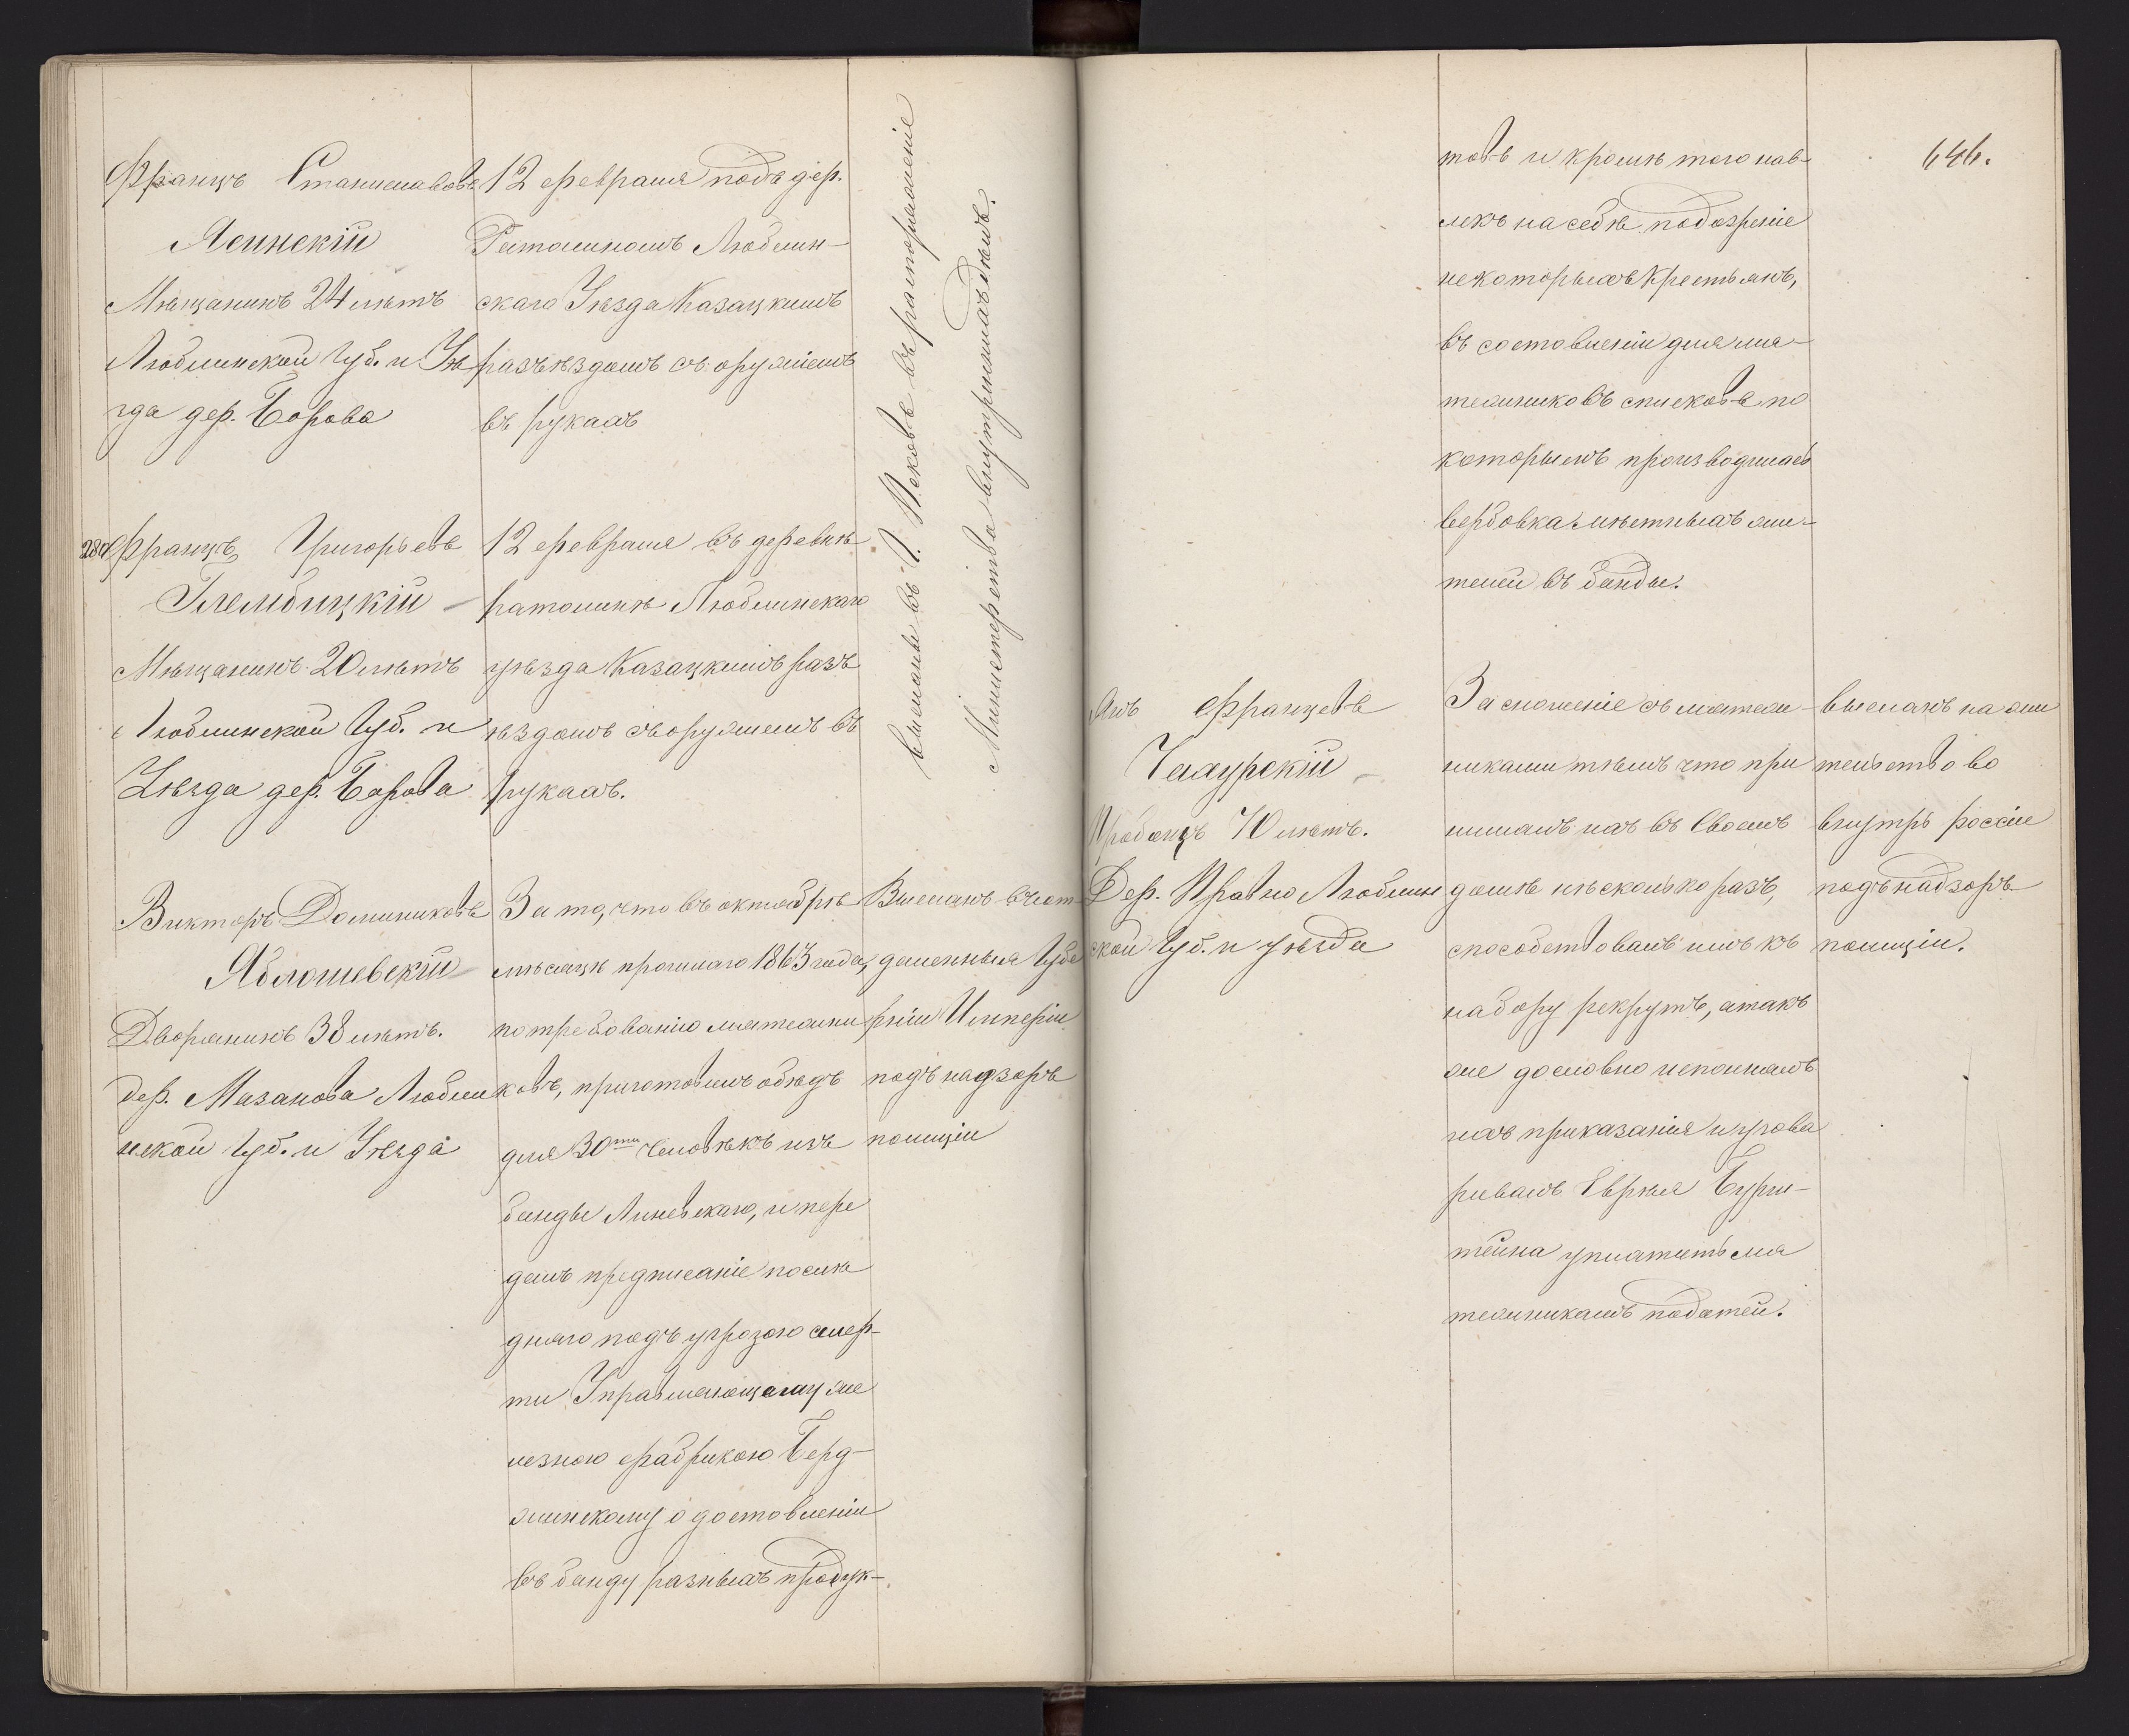 Францъ Станиславовъ
Ясинскій
Мѣщанинъ 24 лѣтъ
Люблинской Губ. и Уѣ
зда дер. Борова
12 февраля подъ дер.
Люблин-
скаго Уѣзда Казацкимъ
разъѣздомъ съ оружіемъ
въ рукахъ
Францъ Григорьевъ
Глембицкій
Мѣщанинъ 20 лѣтъ
Люблинской Губ. и
Уѣзда дер. Борова
12 февраля въ деревнѣ
Люблинскаго
уѣзда Казацкимъ разъ
ѣздомъ съ оружіемъ въ
рукахъ.
высланы въ Г. Псковъ въ распоряженіе
Министерства внутреннихъ дѣлъ.
Викторъ Доминиковъ
Яблошевскій
Дворянинъ 38 лѣтъ.
дер. Мазанова Любли
нской Губ. и Уѣзда
За то, что въ октябрѣ
мѣсяцѣ прошлаго 1863 года,
по требованію мятежни
ковъ, приготовилъ обѣдъ
для 30ти человѣкъ изъ
банды Линевскаго, и пере
далъ предписаніе послѣ
дняго подъ угрозою смер-
ти Управляющему же
лезною фабрикою Берд-
жинскому о доставленіи
въ банду разныхъ продук-
Высланъ въ от-
даленныя Губе
рніи Имперіи
подъ надзоръ
полиціи
646.
товъ и кромѣ того нав-
лекъ на себѣ подозреніе
некоторыхъ Крестьянъ,
въ составленіи для мя-
тежниковъ списковъ по
которымъ производилась
вербовка мѣстныхъ жи-
телей въ банды.
Янъ Францевъ
Пробощъ 70 лѣтъ.
Дер. Правно Люблин
ской Губ. и уѣзда
За сношеніе съ мятеж-
никами тѣмъ что при
нималъ ихъ въ своемъ
домѣ нѣсколько разъ,
способствовалъ имъ къ
набору рекрутъ, а так
же дословно исполнялъ
ихъ приказанія и угова
ривалъ Еврея Бурш-
тейна уплатить мя
тежникамъ податей.
высланъ на жи
тельство во
внутрь россіи
подъ надзоръ
полиціи.